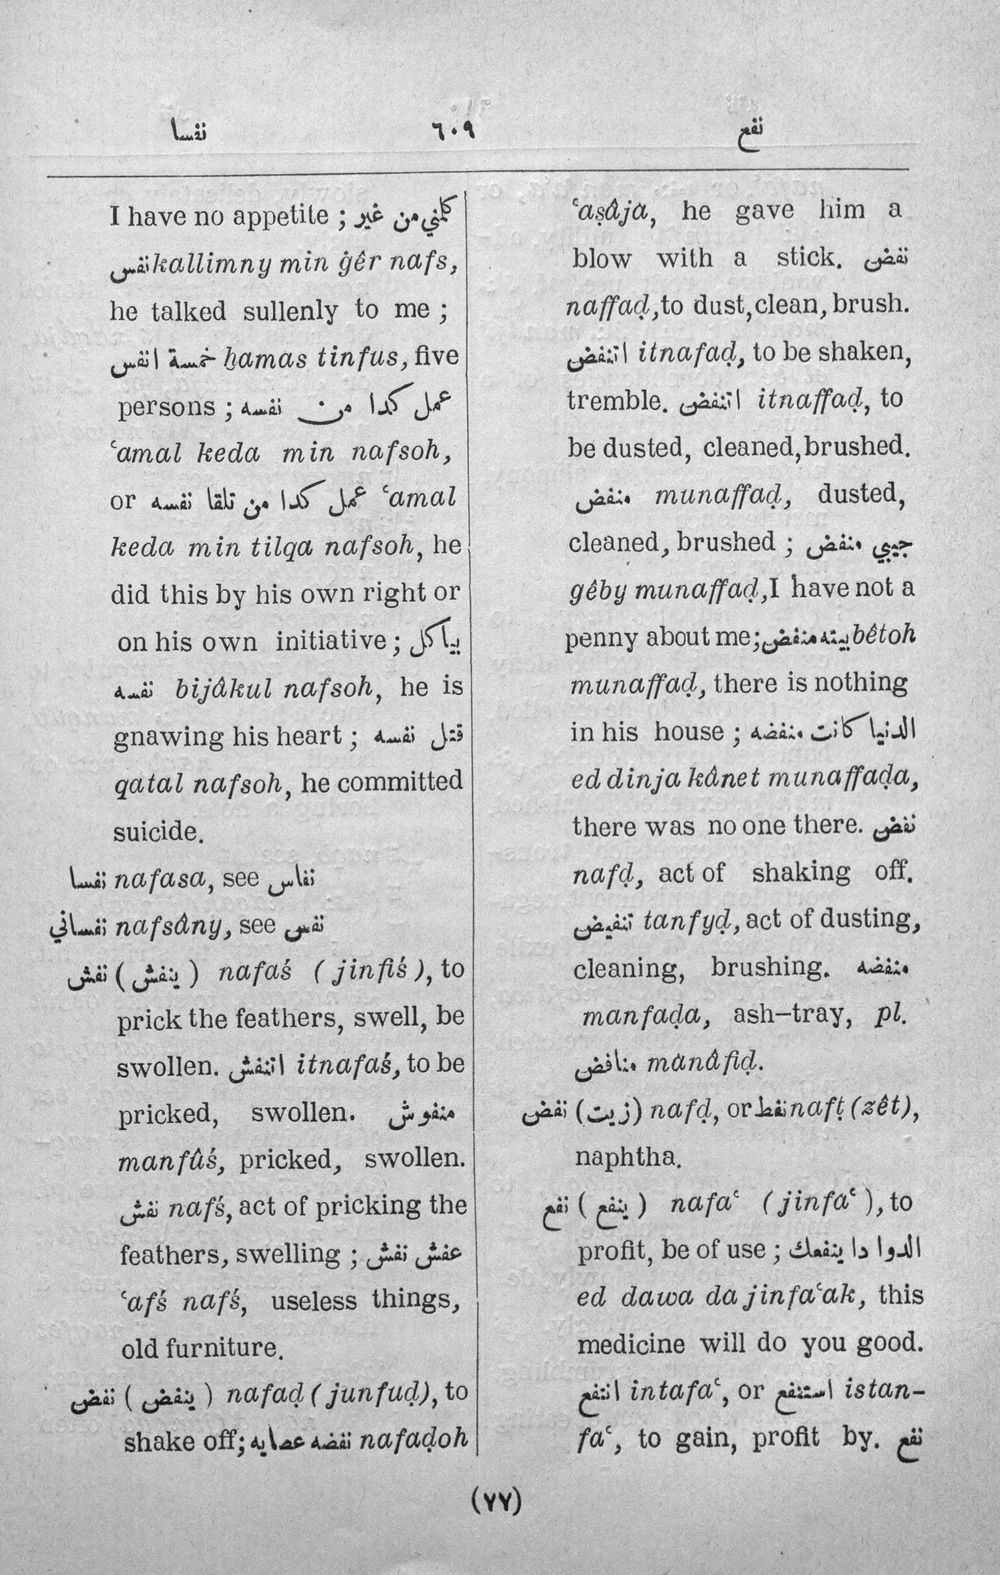 نفسا ٦٠٩ نفع
I have no appetite ; كلمني من غير
نفس kallimny min ġêr nafs,
he talked sullenly to me ;
خمسة انفس ḫamas tinfus, five
persons ; عمل كدا من نفسه
ʿamal keda min nafsoh,
or عمل كدا من تلقا نفسه ʿamal
keda min tilqa nafsoh, he
did this by his own right or
on his own initiative ; بياكل
نفسه bijâkul nafsoh, he is
gnawing his heart ; قتل نفسه
qatal nafsoh, he committed
suicide.
نفسا nafasa, see نفاس
نفساني nafsâny, see نفس
نفش (ينفش) nafaś (jinfiś), to
prick the feathers, swell, be
swollen. اتنفش itnafaś, to be
pricked, swollen. منفوش
manfûś, pricked, swollen.
نفش nafś, act of pricking the
feathers, swelling ; عفش نفش
ʿafś nafś, useless things,
old furniture.
نفض (ينفض) nafaḍ (junfuḍ), to
shake off; نفضه عصايه nafaḍoh
ʿaṣâja, he gave him a
blow with a stick. نفض
naffaḍ, to dust, clean, brush.
اتنفض itnafaḍ, to be shaken,
tremble. اتنفض itnaffaḍ, to
be dusted, cleaned, brushed.
منفض munaffaḍ, dusted,
cleaned, brushed ; جيبي منفض
gêby munaffaḍ, I have not a
penny about me; بيته منفض bêtoh
munaffaḍ, there is nothing
in his house ; الدنيا كانت منفضه
ed dinja kânet munaffaḍa,
there was no one there. نفض
nafḍ, act of shaking off.
تنفيض tanfyḍ, act of dusting,
cleaning, brushing. منفضه
manfaḍa, ash-tray, pl.
منافض manâfiḍ.
نفض (زيت) nafḍ, or نفط nafṭ (zêt),
naphtha.
نفع (ينفع) nafaʿ (jinfaʿ), to
profit, be of use ; الدوا دا ينفعك
ed dawa da jinfaʿak, this
medicine will do you good.
انتفع intafaʿ, or استنفع istan-
faʿ, to gain, profit by. نفع
(٧٧)